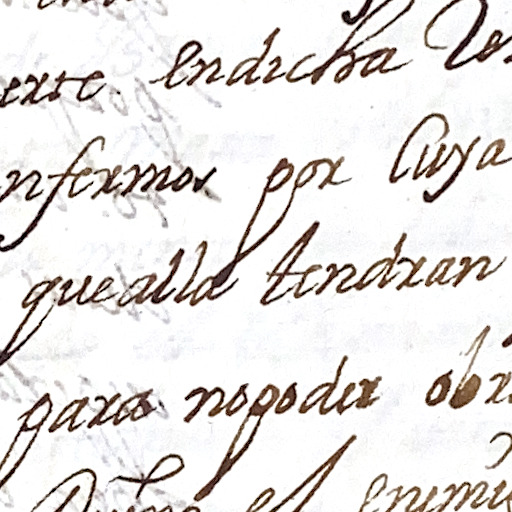 erte. endicha
nfermos por Cuya
quealla tendran
para nopoder obr
el enimi